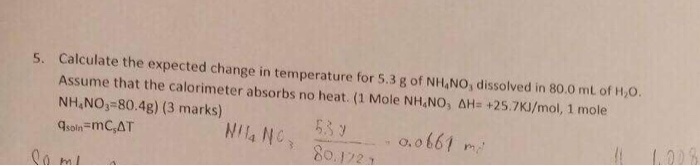 5. Calculate the expected change in temperature for 5.3 g of NH₄NO₃ dissolved in 80.0 mL of H₂O.
Assume that the calorimeter absorbs no heat. (1 Mole NH₄NO₃ ΔH= +25.7KJ/mol, 1 mole
NH₄NO₃=80.4g) (3 marks)
qsoln=mCₛΔT
NH₄NO₃ 5.3 g 0.0661
80.
80 mL